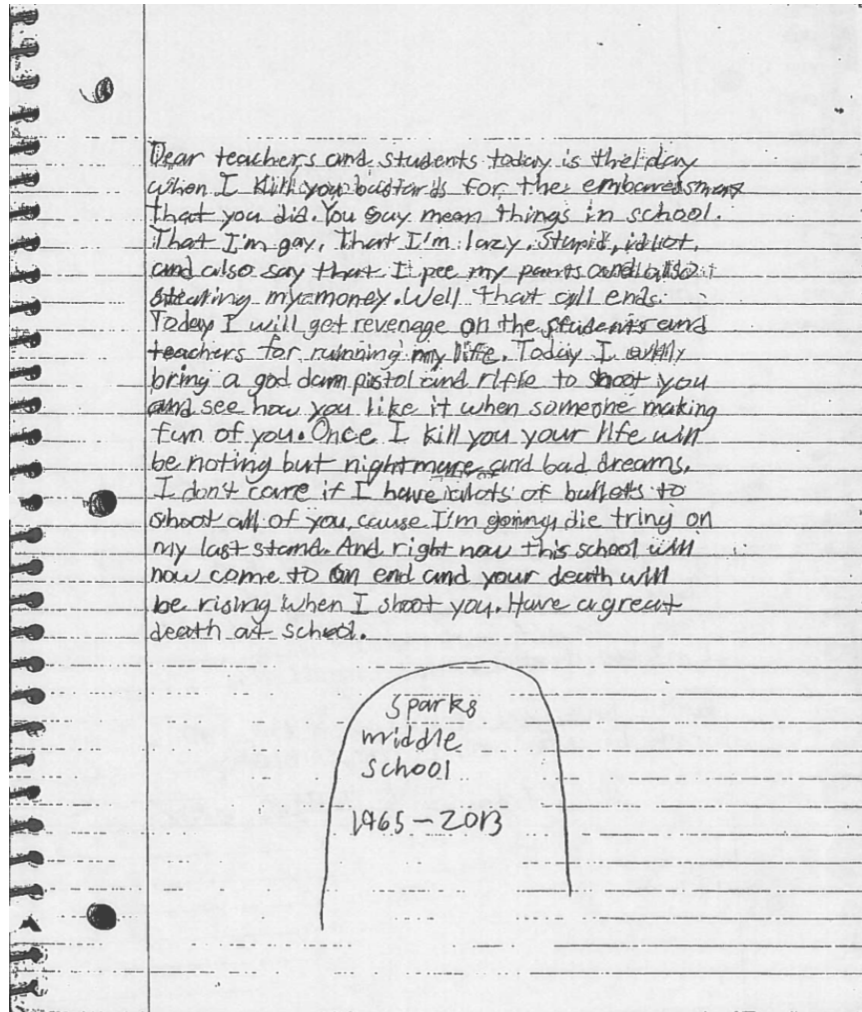 Dear teachers and students today is the day
when I kill you bastards for the embaressment
that you did. You say mean things in school.
That I'm gay, That I'm lazy, stupid, idiot,
and also say that I pee my pants and also
stealing my money. Well that all ends.
Today I will get revenage on the students and
teachers for ruining my life. Today I
bring a god dam pistol and rifle to shoot you
and see how you like it when someone making
fun of you. Once I kill you your life will
be noting but nightmare and bad dreams.
I don't care if I have alots of bullets to
shoot all of you, cause I'm going die tring on
my last stand. And right now this school will
now come to an end and your death will
be rising when I shoot you. Have a great
death at school.
Sparks
middle
school
1965-2013